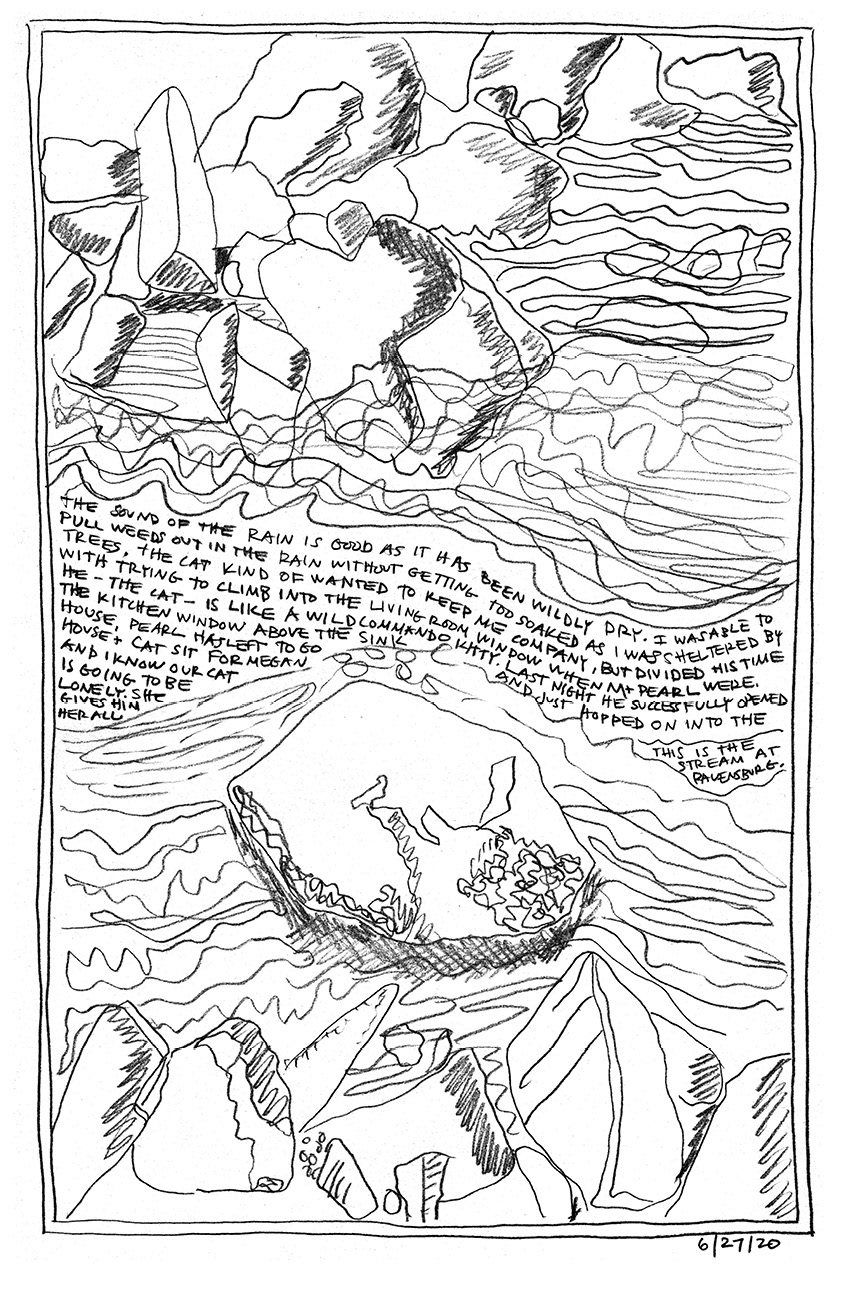 THE SOUND OF THE RAIN IS GOOD AS IT HAS BEEN WILDLY DRY. I WAS ABLE TO
PULL WEEDS OUT IN THE RAIN WITHOUT GETTING TOO SOAKED AS I WAS SHELTERED BY
TREES, THE CAT KIND OF WANTED TO KEEP ME COMPANY, BUT DIVIDED HIS TIME
WITH TRYING TO CLIMB INTO THE LIVING ROOM WINDOW WHEN M+ PEARL WERE.
HE - THE CAT - IS LIKE A WILD COMMANDO KITTY. LAST NIGHT HE SUCCESSFULLY OPENED
THE KITCHEN WINDOW ABOVE THE SINK AND JUST HOPPED ON INTO THE
HOUSE, PEARL HAS LEFT TO GO
HOUSE + CAT SIT FOR MEGAN
AND I KNOW OUR CAT
IS GOING TO BE
LONELY. SHE
GIVES HIM
HER ALL
THIS IS THE
STREAM AT
RAVENSBURG.
6/27/20